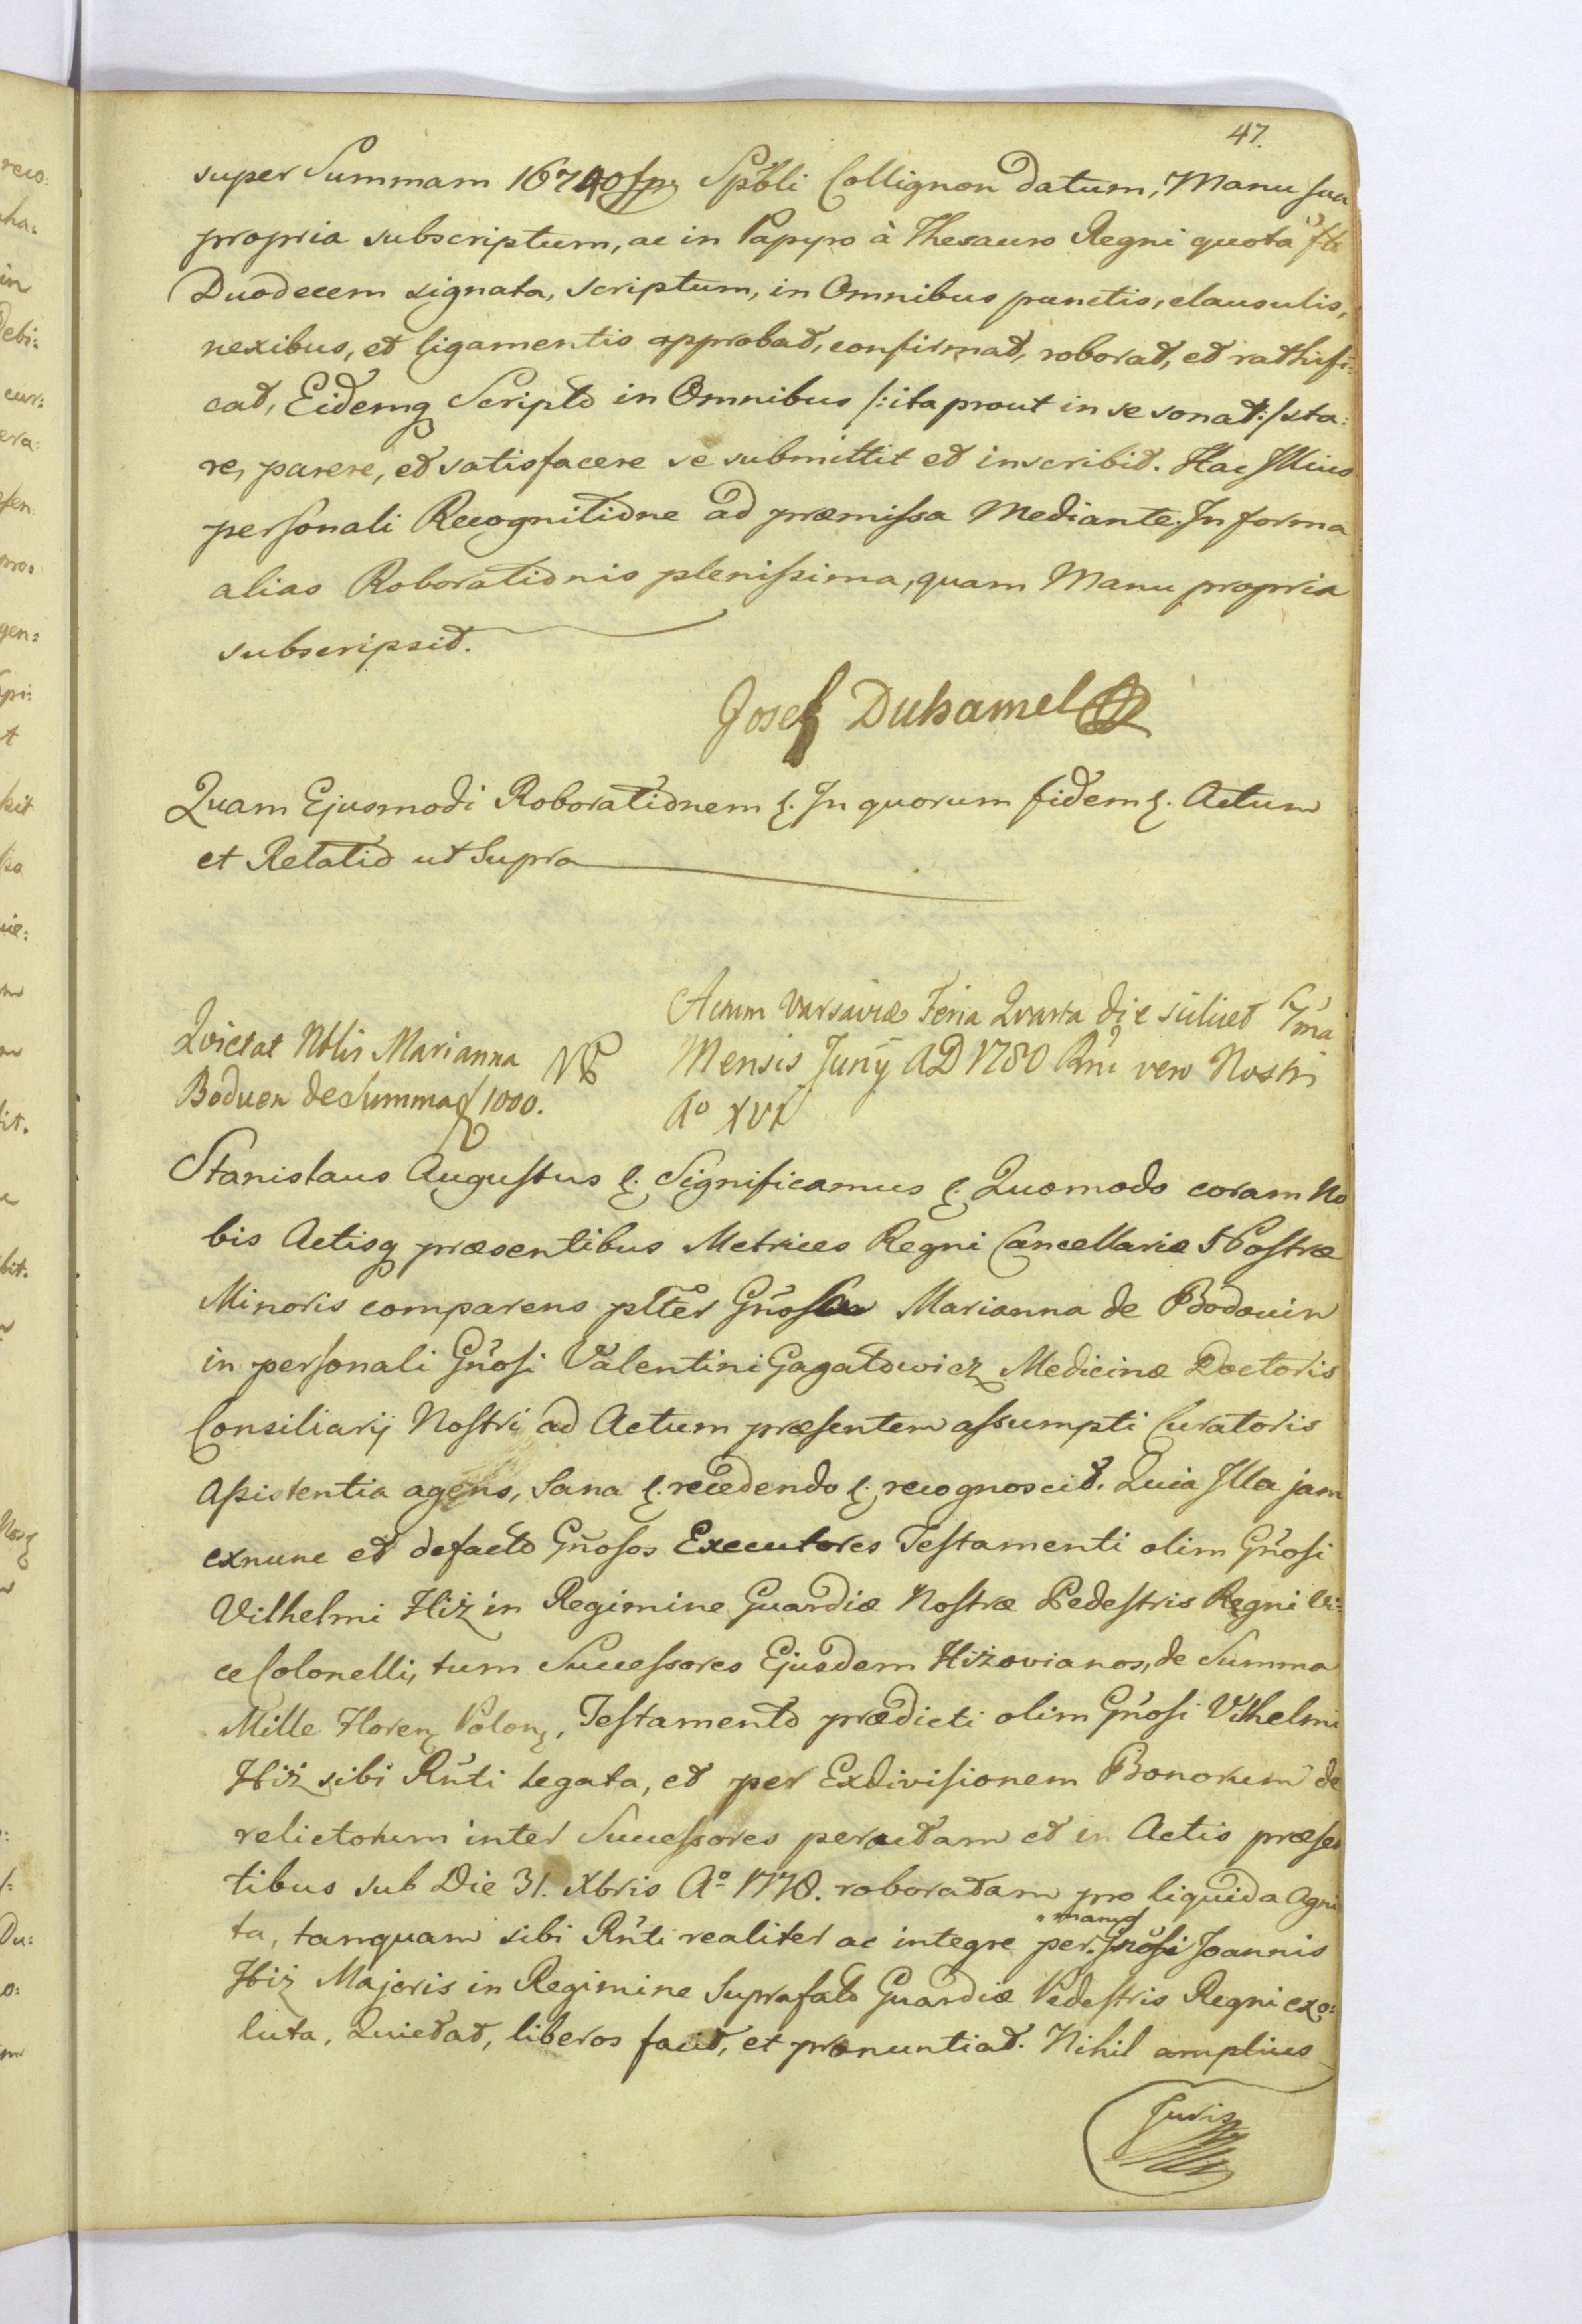 47.
super Summam 16740 fp Spbli Collignon datum, Manu sua
propria subscriptum, ac in Papyro à Thesauro Regni quota
Duodecem signata, scriptum, in Omnibus punctis, clausulis,
nexibus, et ligamentis approbat, confirmat, roborat, et rathifi=
cat, Eidemq Scripto in Omnibus /: ita prout in se sonat :/ sta=
re, parere, et satisfacere se submittit et inscribit. Hac Illius
personali Recognitione ad præmissa Mediante. In forma
alias Roborationis plenissima, quam Manu propria
subscripsit.
Josef Duhamel
Quam Ejusmodi Roborationem &. In quorum fidem &. Actum
et Relatio ut Supra
Actum Varsaviæ Feria Qvarta die scilicet 7ma
Mensis Junÿ AD 1780 Rni vero Nostri
Ao XVI
Qvietat Nblis Marianna
Boduen de Summa f 1000.
Stanislaus Augustus &. Significamus &. Quomodo coram No
bis Actisq præsentibus Metrices Regni Cancellariæ Nostræ
Minoris comparens plter Gnosa Marianna de Bodouin
in personali Gnosi Valentini Gagatowicz Medicinæ Doctoris
Consiliarij Nostri ad Actum præsentem assumpti Curatoris
Assistentia agens, Sana &. recedendo &. recognoscit. Quia Illa jam
exnunc et defacto Gnosos Executores Testamenti olim Gnosi
Vilhelmi Hiż in Regimine Guardiæ Nostræ Pedestris Regni Vi=
ce Colonelli, tum Successores Ejusdem Hiżovianos, de Summa
Mille Floren Polon, Testamento prædicti olim Gnosi Vilhelmi
Hiż sibi Rnti legata, et per Exdivisionem Bonorum de
relictorum inter Successores peractam et in Actis præsen
tibus sub Die 31. Xbris Ao 1778. roboratam pro liquida Agni
ta, tanquam sibi Rnti realiter ac integre per manus Gnosi Joannis
Hiż Majoris in Regimine Suprafato Guardiæ Pedestris Regni exo=
luta, Quietat, liberos facit, et pronuntiat. Nihil amplius
Juris